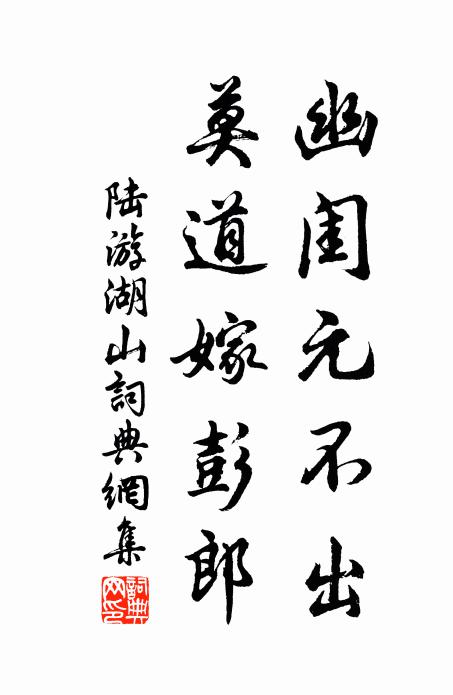 幽闺元不出
莫道嫁彭郎
陆游湖山詞典網集
詞典
网印